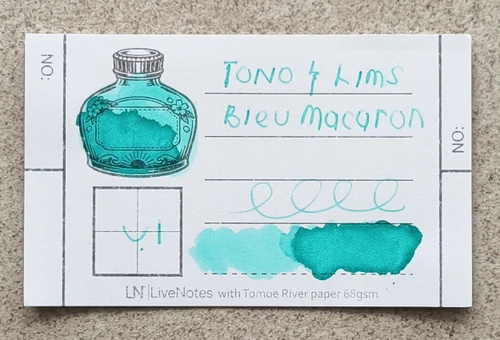 NO:
Tono & Lims
Bleu Macaron
NO:
v.1
LN LiveNotes with Tomoe River paper 68gsm